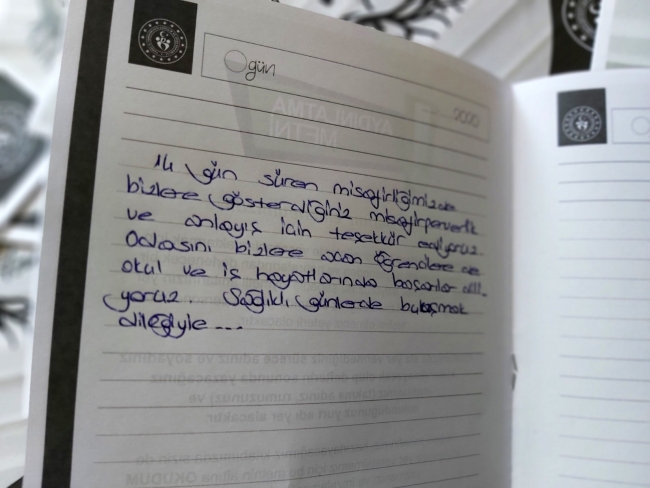 gün
2020
14 gün süren misafirliğimizde
bizlere gösterdiğiniz misafirperverlik
ve anlayış için teşekkür ediyoruz.
Odasını bizlere açan öğrencilere de
okul ve iş hayatlarında başarılar dili-
yoruz. Sağlıklı günlerde buluşmak
dileğiyle...
AYDINLATMA
METNİ